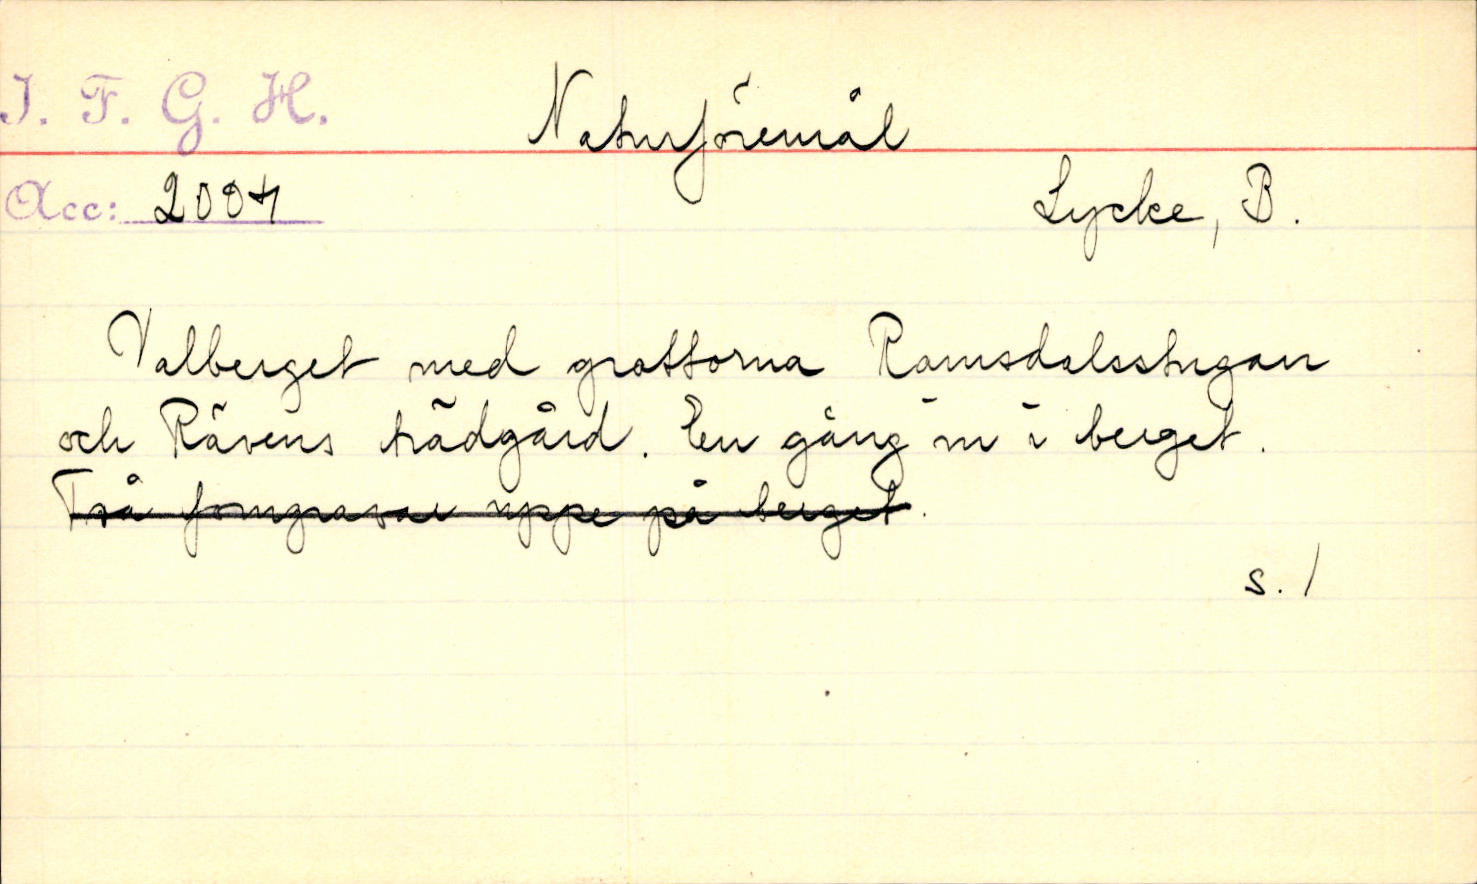 I. F. G. H.
Naturföremål
Acc: 2084
Lycke, B.
Valberget med grottorna Ramsdalsstugan
och Rävens trädgård. En gång in i berget.
Två forngravar uppe på berget.
s. 1